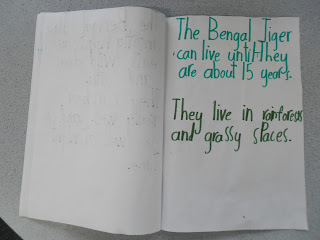 The Bengal Tiger
can live until They
are about 15 years.
They live in rainforests
and grassy spaces.